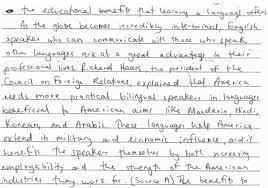 • the educational benefits that learning a language offers.
As the globe becomes incredibly intertwined, English
speakers who can communicate with those who speak
other languages are at a great advantage in their
professional lives. Richard Haass, the president of the
Council on Foreign Relations, explained that America
needs more practical bilingual speakers in languages
beneficial to American aims like Mandarin, Hindi,
Korean, and Arabic. These languages help America
extend its military and economic influence, and it
benefits the speakers themselves by both increasing
employability and the strength of the American
industries they work for. (Source A) The benefits to